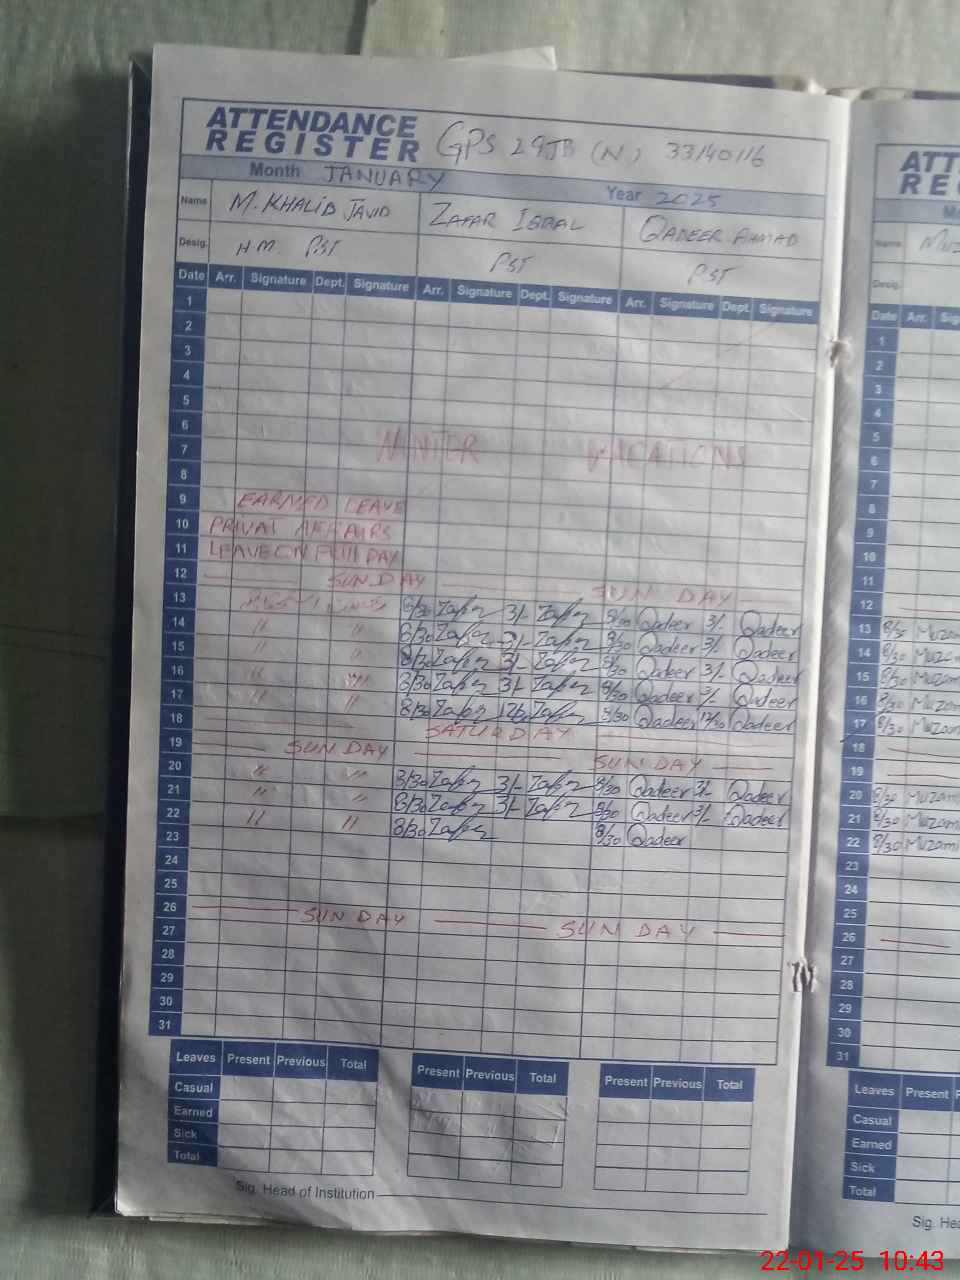 ATTENDANCE
REGISTER GPS 29JB (N) 33140116
Month JANUARY Year 2025
Name M. KHALID JAVID ZAFAR IQBAL QADEER AHMAD
Desig. H.M. PST PST PST
Date Arr. Signature Dept. Signature Arr. Signature Dept. Signature Arr. Signature Dept. Signature
1
2
3
4
5
6
7 WINTER VACATIONS
8
9 EARNED LEAVE
10 PRIVAT AFFAIRS
11 LEAVE ON FULL DAY
12 SUNDAY SUN DAY
13 8/30 Zafar 3/- Zafar 8/30 Qadeer 3/- Qadeer
14 " " 8/30 Zafar 3/- Zafar 8/30 Qadeer 3/- Qadeer
15 " " 8/30 Zafar 3/- Zafar 8/30 Qadeer 3/- Qadeer
16 " " 8/30 Zafar 3/- Zafar 8/30 Qadeer 3/- Qadeer
17 " " 8/30 Zafar Zafar 8/30 Qadeer 12/30 Qadeer
18 SATURDAY
19 SUNDAY SUNDAY
20 " " 8/30 Zafar 3/- Zafar 8/30 Qadeer 3/- Qadeer
21 " " 8/30 Zafar 3/- Zafar 8/30 Qadeer 3/- Qadeer
22 " " 8/30 Zafar 8/30 Qadeer
23
24
25
26 SUNDAY SUN DAY
27
28
29
30
31
Leaves Present Previous Total Present Previous Total Present Previous Total
Casual
Earned
Sick
Total
Sig. Head of Institution
ATT
RE
Name
Desig.
Date Arr.
1
2
3
4
5
6
7
8
9
10
11
12
13 8/30
14 8/30
15 8/30
16 8/30
17 8/30
18
19
20 8/30
21 8/30
22 8/30
23
24
25
26
27
28
29
30
31
Leaves Present
Casual
Earned
Sick
Total
Sig.
22-01-25 10:43